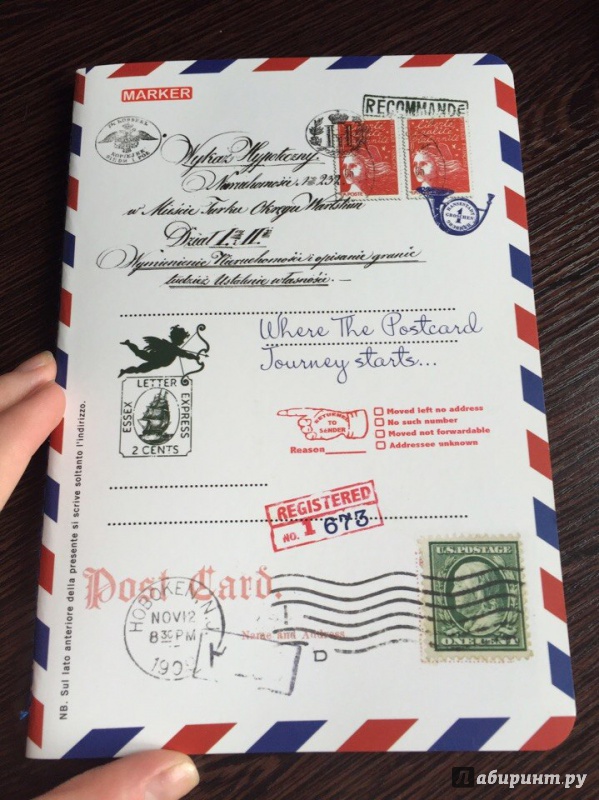 MARKER
RECOMMANDÉ
Wykaz Hypoteczny.
Nieruchomości № 232
w Mieście Turku Okręgu Wartskim
Dział I. II.
Wymienienie Nieruchomości i opisanie granic
tudzież Ustalenie własności.
LAPOSTE
Where The Postcard
Journey starts...
LETTER
ESSEX
EXPRESS
2 CENTS
RETURNED
TO
SENDER
Reason
Moved left no address
No such number
Moved not forwardable
Addressee unknown
REGISTERED
NO. 1 673
NB. Sul lato anteriore della presente si scrive soltanto l'indirizzo.
Post Card.
Name and Address
HOBOKEN N.J.
NOV 12
8 30 PM
1909
D
U.S. POSTAGE
ONE CENT
Лабиринт.ру